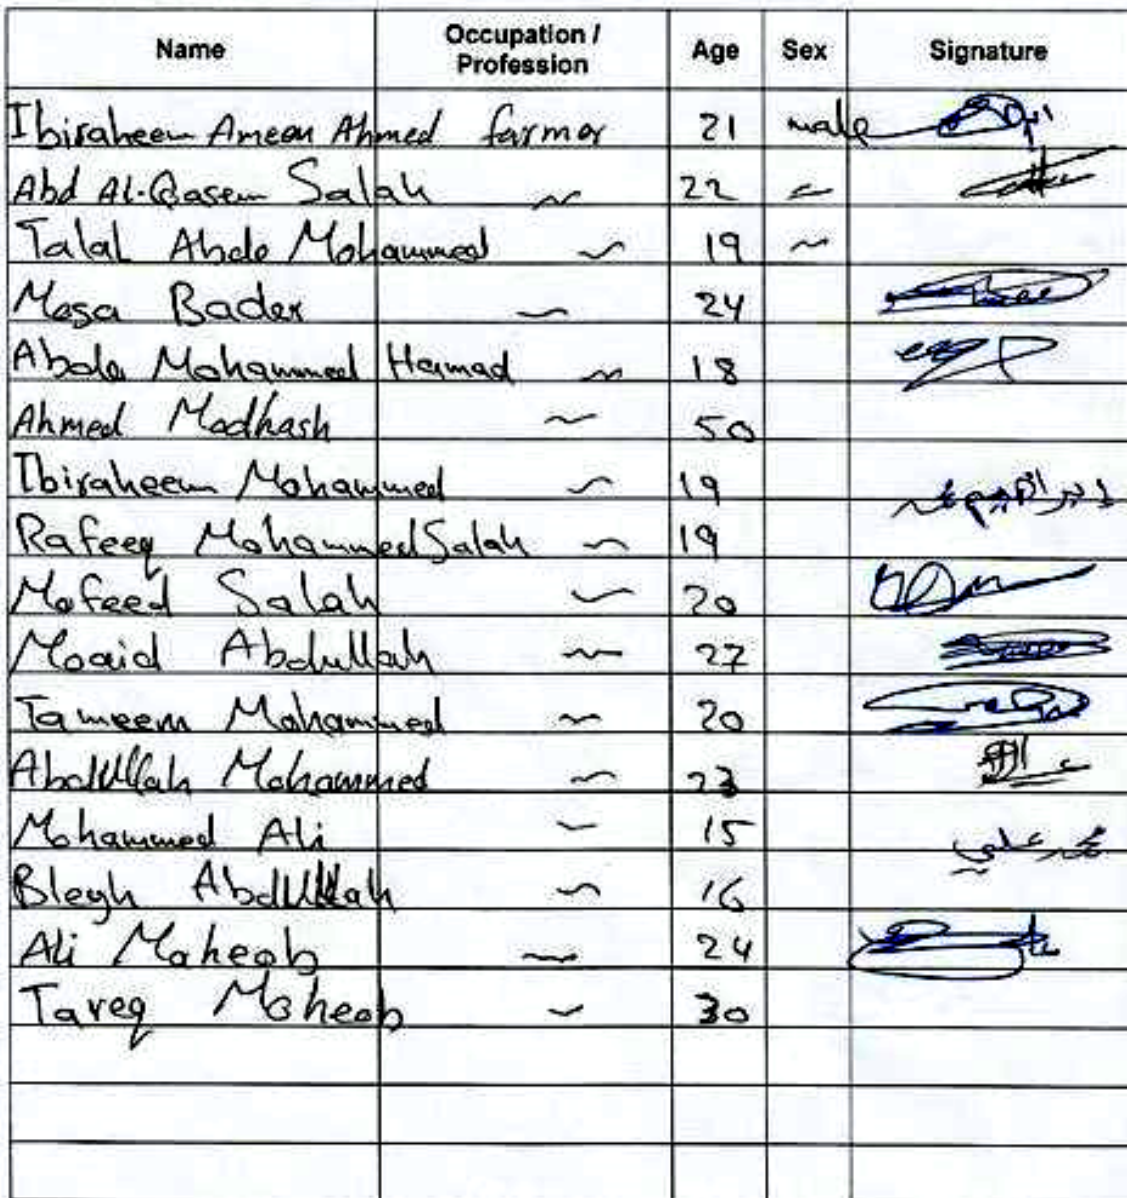 Name Occupation / Profession Age Sex Signature
Ibiraheem Ameen Ahmed farmer 21 male
Abd Al-Qasem Salah ~ 22 ~
Talal Abdo Mohammed ~ 19 ~
Mosa Bader ~ 24
Abdo Mohammed Hamad ~ 18
Ahmed Modhash ~ 50
Ibiraheem Mohammed ~ 19 ابراهيم محمد
Rafeeq Mohammed Salah ~ 19
Mofeed Salah ~ 20
Moaid Abdullah ~ 27
Tameem Mohammed ~ 20
Abdullah Mohammed ~ 23
Mohammed Ali ~ 15 محمد علي
Blegh Abdullah ~ 16
Ali Maheob ~ 24
Tareq Moheob ~ 30